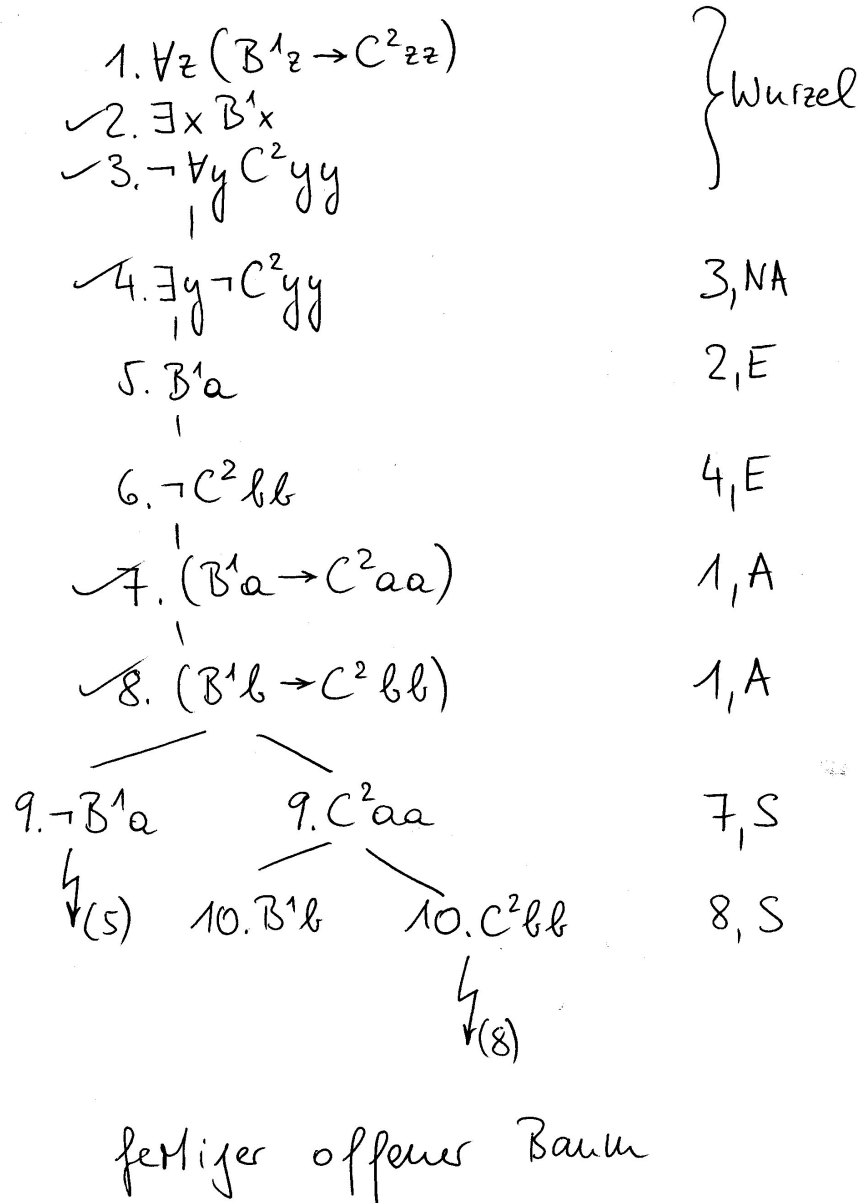 1. ∀z (B¹z → C²zz) } Wurzel
✓2. ∃x B¹x
✓3. ¬∀y C²yy
✓4. ∃y ¬C²yy 3, NA
5. B¹a 2, E
6. ¬C²bb 4, E
✓7. (B¹a → C²aa) 1, A
✓8. (B¹b → C²bb) 1, A
9. ¬B¹a 9. C²aa 7, S
(5) 10. B¹b 10. C²bb 8, S
(8)
fertiger offener Baum